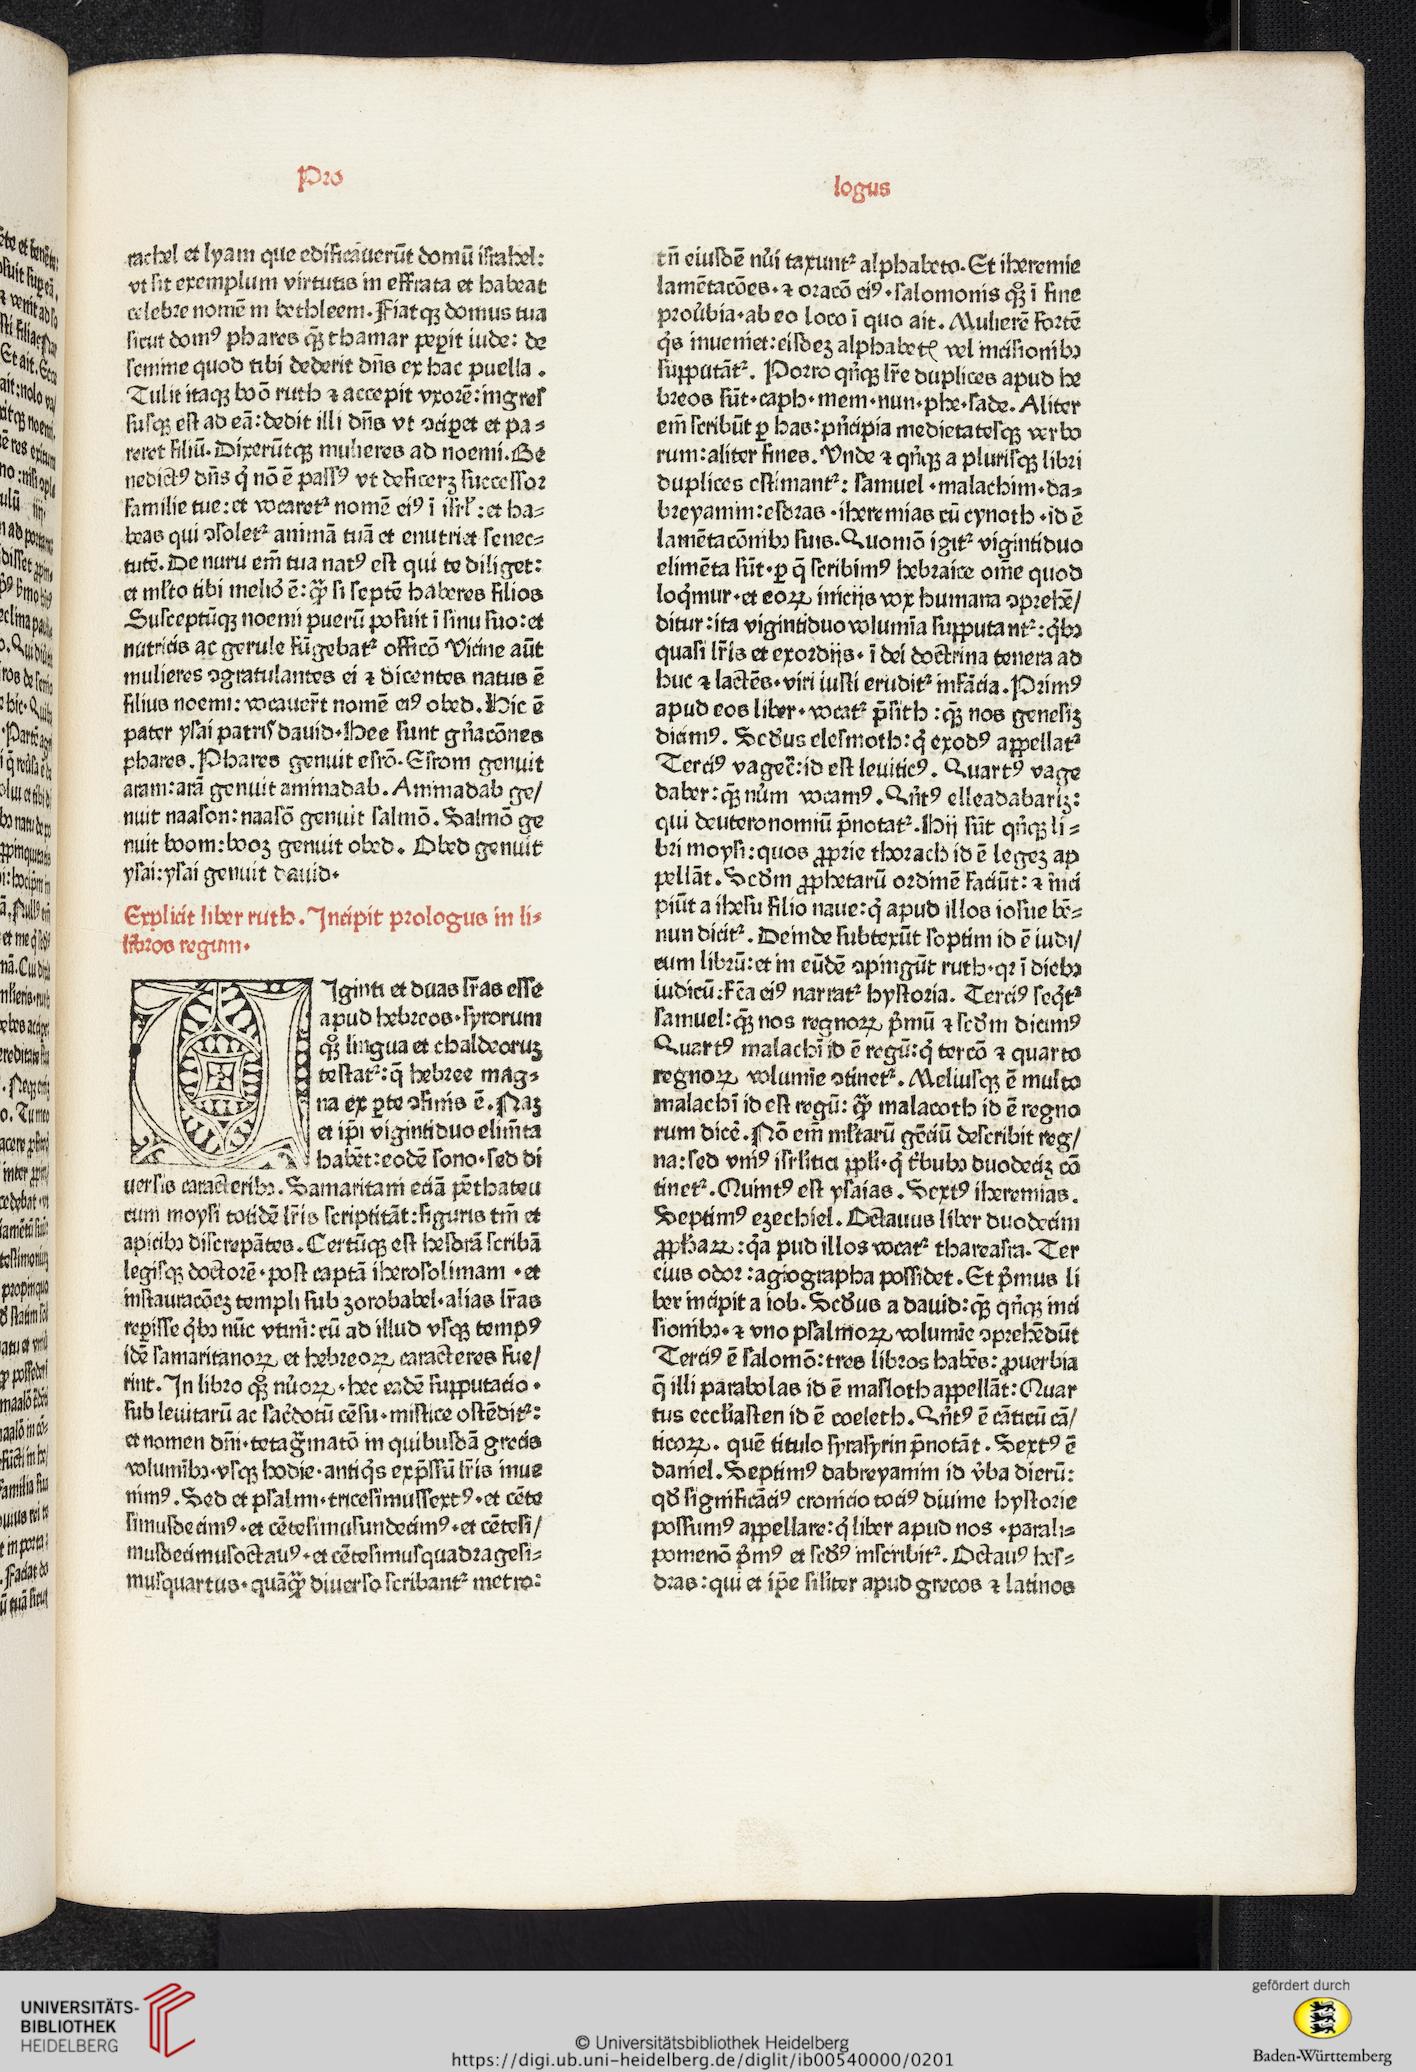 Pro
logus
rachel et lyam que edificauerūt domū iſrahel:
vt ſit exemplum virtutis in effrata et habeat
celebre nomē in bethleem. Fiatqꝫ domus tua
ſicut domꝰ phares quē thamar peperit iude: de
ſemine quod tibi dederit dn̄s ex hac puella.
Tulit itaqꝫ boō ruth ⁊ accepit vxorē: ingreſ
ſuſqꝫ eſt ad eā: dedit illi dn̄s vt ɔciperet et pa-
reret filiū. Dixerūtqꝫ mulieres ad noemi. Be
nedictꝰ dn̄s q̇ nō ē paſſꝰ vt deficerꝫ ſucceſſor
familie tue: et vocaretᷣ nomē eiꝰ ī iſrl̓: et ha-
beas qui ɔſoletᷣ animā tuā et enutriet ſenec-
tutē. De nuru em̄ tua natꝰ eſt qui te diliget:
et ml̓to tibi melio᷑ ē: qꝫ̄ ſi ſeptē haberes filios
Suſceptūqꝫ noemi puerū poſuit ī ſinu ſuo: et
nutricis ac gerule fūgebatᷣ officō Vicine aūt
mulieres ɔgratulantes ei ⁊ dicentes natus ē
filius noemi: vocauer̄t nomē eiꝰ obed. Hic ē
pater yſai patriſ dauid. Hee ſunt gn̄acōnes
phares. Phares genuit eſrō. Eſrom genuit
aram: arā genuit aminadab. Aminadab ge/
nuit naaſon: naaſō genuit ſalmō. Salmō ge
nuit boom: booz genuit obed. Obed genuit
yſai: yſai genuit dauid.
Explicit liber ruth. Incipit prologus in li-
libros regum.
Iginti et duas lr̄as eſſe
apud hebreos. ſyrorum
qꝫ̊ lingua et chaldeoruꝫ
teſtatᷣ: q̄ hebree mag-
na ex ꝑte ɔfinis ē. Naꝫ
et ip̄i vigintiduo elim̄ta
habēt: eodē ſono. ſed di
uerſis caracteribɔ. Samaritani eciā pēthateu
cum moyſi totidē lr̄is ſcriptitāt: figuris tm̄ et
apicibɔ diſcrepātes. Certūqꝫ eſt heſdrā ſcribā
legiſqꝫ doctorē. poſt captā iheroſolimam. et
inſtauracōeꝫ templi ſub zorobabel. alias lr̄as
reperiſſe q̇bɔ nūc vtimī: cū ad illud vſqꝫ tempꝰ
idē ſamaritanoꝝ et hebreoꝝ caracteres fue/
rint. In libro qꝫ̊ nu᷑oꝝ. hec eadē ſupputatio.
ſub leuitarū ac ſac᷑dotū cēſu. miſtice oſtēditᷣ:
et nomen dn̄i. tetag̃matō in quibuſdā grecis
volumībɔ. vſqꝫ hodie. antiq̇s exp̄ſſū lr̄is inue
nimꝰ. Sed et pſalmi. triceſimusſextꝰ. et cēte
ſimuſdecimꝰ. et cēteſimuſundecimꝰ. et cēteſi/
muſdecimuſoctauꝰ. et cēteſimuſquadrageſi-
muſquartus. quāqꝫ̄ diuerſo ſcribantᷣ metro:
tn̄ eiuſdē nu᷑i taxuntᷣ alphabeto. Et iheremie
lamētacōes. ⁊ oracō eiꝰ. ſalomonis qꝫ̊ ī fine
prou᷑bia. ab eo loco ī quo ait. Mulierē fortē
q̇s inueniet: eiſdeꝫ alphabet͛ vel inciſionibɔ
ſupputātᷣ. Porro qn̄qꝫ lr̄e duplices apud he
breos ſūt. caph. mem. nun. phe. ſade. Aliter
em̄ ſcribūt ꝑ has: pn̄cipia medietateſqꝫ verbo
rum: aliter fines. Vnde ⁊ qn̄qꝫ a pluriſqꝫ libri
duplices eſtimantᷣ: ſamuel. malachim. da-
breyamin: eſdras. iheremias cū cynoth. id ē
lamētacōnibɔ ſuis. Quomō igitᷣ vigintiduo
elimēta ſūt. ꝑ q̄ ſcribimꝰ hebraice om̄e quod
loq̇mur. et eoꝝ inicijs vox humana ɔprehē/
ditur: ita vigintiduo volumīa ſupputantᷣ: q̇bɔ
quaſi lr̄is et exordijs. ī dei doctrina tenera ad
huc ⁊ lactēs. viri iuſti eruditᷣ infācia. Primꝰ
apud eos liber. vocatᷣ p̄ſith: quē nos geneſiꝫ
dicimꝰ. Scd̓us eleſmoth: q̇ exodꝰ appellatᷣ
Terciꝰ vagec̄: id eſt leuiticꝰ. Quartꝰ vage
daber: quē nu᷑m vocamꝰ. Qn̄tꝰ elleadabariꝫ:
qui deuteronomiū p̄notatᷣ. Hij ſūt qn̄qꝫ li-
bri moyſi: quos ꝓprie thorach id ē legeꝫ ap
pellāt. Scd̓m ꝓphetarū ordinē faciūt: ⁊ īnci
piūt a iheſu filio naue: q̇ apud illos ioſue bē-
nun dicitᷣ. Deinde ſubtexūt ſoptim id ē iudi/
cum librū: et in eūdē ɔpingūt ruth. qꝛ ī diebɔ
iudicū: fc̄a eiꝰ narratᷣ hyſtoria. Terciꝰ ſeq̇tᷣ
ſamuel: quē nos regnoꝝ p̓mū ⁊ ſcd̓m dicimꝰ
Quartꝰ malachī id ē regū: q̇ tercō ⁊ quarto
regnoꝝ volumīe ɔtinetᷣ. Meliuſqꝫ ē multo
malachī id eſt regū: qꝫ̄ malacoth id ē regno
rum dice᷑. Nō em̄ ml̓tarū gēciū deſcribit reg/
na: ſed vniꝰ iſrl̓itici ppl̓i. q̇ t̓bubɔ duodeciꝫ cō
tinetᷣ. Quintꝰ eſt yſaias. Sextꝰ iheremias.
Septimꝰ ezechiel. Octauus liber duodecim
ꝓph̓aꝝ: q̇ a pud illos vocatᷣ thareaſra. Ter
cius odor: agiographa poſſidet. Et p̓mus li
ber incipit a iob. Scd̓us a dauid: quē qn̄qꝫ inci
ſionibɔ. ⁊ vno pſalmoꝝ volumīe ɔprehēdūt
Terciꝰ ē ſalomō: tres libros habēs: ꝓuerbia
q̄ illi parabolas id ē maſloth appellāt: Quar
tus eccl̓iaſten id ē coeleth. Qn̄tꝰ ē cāticū cā/
ticoꝝ. quē titulo ſyraſyrin p̄notāt. Sextꝰ ē
daniel. Septimꝰ dabreyamin id v᷑ba dierū:
qd̓ ſignificāciꝰ cronicio tociꝰ diuine hyſtorie
poſſumꝰ appellare: q̇ liber apud nos. parali-
pomenō p̓mꝰ et ſcd̓ꝰ inſcribitᷣ. Octauꝰ heſ-
dras: qui et ip̄e ſil̓iter apud grecos ⁊ latinos
UNIVERSITÄTS-
BIBLIOTHEK
HEIDELBERG
© Universitätsbibliothek Heidelberg
https://digi.ub.uni-heidelberg.de/diglit/ib00540000/0201
gefördert durch
Baden-Württemberg